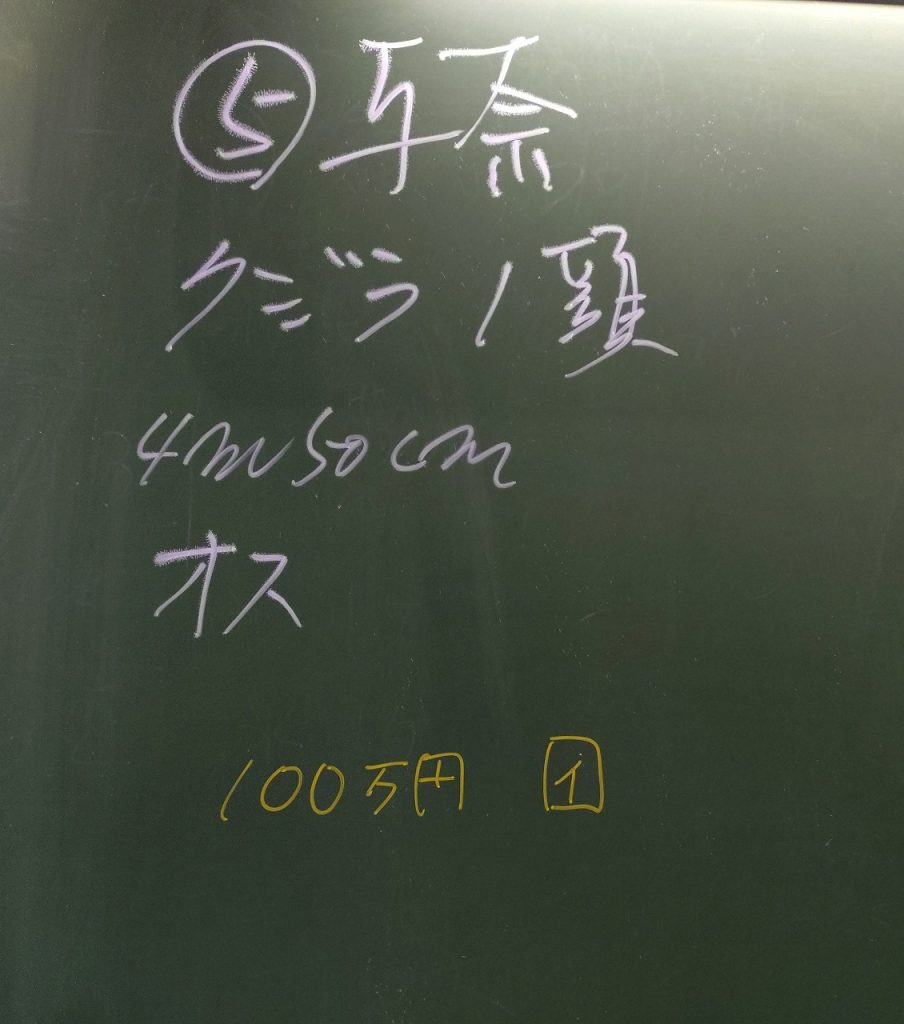 ⑤ 与奈
クジラ 1頭
4m50cm
オス
100万円 イ